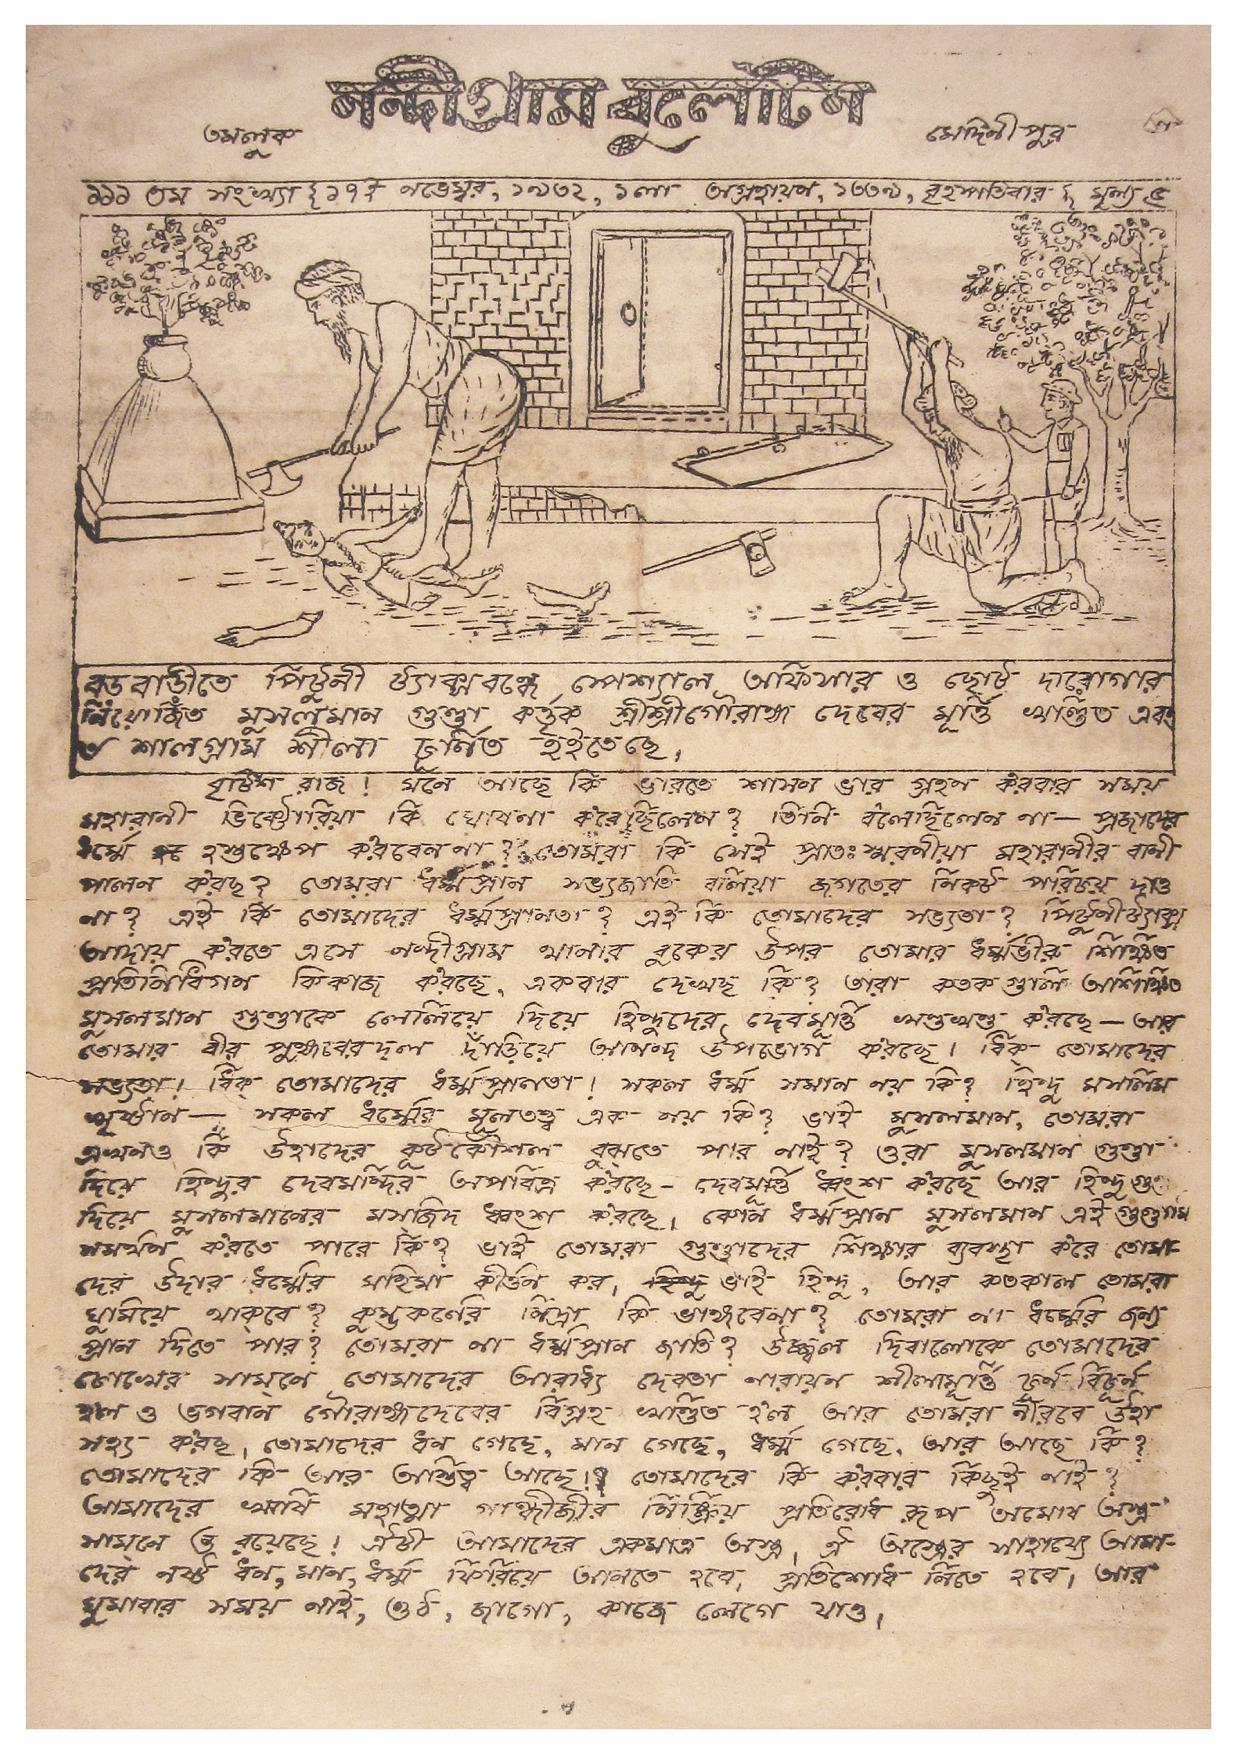 নন্দীগ্রাম বুলেটিন
তমলুক মেদিনীপুর
১১১ তম সংখ্যা ১৭ই নভেম্বর, ১৯৩২, ১লা অগ্রহায়ন, ১৩৩৯, বৃহস্পতিবার মূল্য ৫
বড়বাড়ীতে পিটুনী ট্যাক্স বন্ধে স্পেশ্যাল অফিসার ও ছোট দারোগার
নিয়োজিত মুসলমান গুণ্ডা কর্ত্তৃক শ্রীশ্রীগৌরাঙ্গ দেবের মূর্ত্তি খণ্ডিত এবং
শালগ্রাম শীলা চূর্নিত হইতেছে,
বৃটিশ রাজ! মনে আছে কি ভারতে শাসন ভার গ্রহন ক'রবার সময়
মহারানী ভিক্টোরিয়া কি ঘোষনা ক'রেছিলেন? তিনি ব'লেছিলেন না— প্রজাদের
ধর্ম্মে হস্তক্ষেপ ক'রবেন না? তোমরা কি সেই প্রাতঃস্মরনীয়া মহারানীর বানী
পালন ক'রছ? তোমরা ধর্ম্মপ্রান সভ্যজাতি বলিয়া জগতের নিকট পরিচয় দাও
না? এই কি তোমাদের ধর্ম্মপ্রানতা? এই কি তোমাদের সভ্যতা? পিটুনীট্যাক্স
আদায় ক'রতে এসে নন্দীগ্রাম থানার বুকের উপর তোমার ধর্ম্মভীরু শিক্ষিত
প্রতিনিধিগন কিকাজ ক'রছে, একবার দেখছ কি? তারা কতকগুলি অশিক্ষিত
মুসলমান গুণ্ডাকে লেলিয়ে দিয়ে হিন্দুদের দেবমূর্ত্তি খণ্ডখণ্ড ক'রছে— আর
তোমার বীর পুঙ্গবেরদল দাঁড়িয়ে আনন্দ উপভোগ ক'রছে। ধিক্ তোমাদের
সভ্যতা! ধিক্ তোমাদের ধর্ম্মপ্রানতা! সকল ধর্ম্ম সমান নয় কি? হিন্দু মসলিম
খৃষ্টান— সকল ধর্ম্মের মূলতত্ত্ব এক নয় কি? ভাই মুসলমান, তোমরা
এখনও কি উহাদের কূটকৌশল বুঝতে পার নাই? ওরা মুসলমান গুণ্ডা
দিয়ে হিন্দুর দেবমন্দির অপবিত্র ক'রছে- দেবমূর্ত্তি ধ্বংশ ক'রছে আর হিন্দু
দিয়ে মুসলমানের মসজিদ ধ্বংশ ক'রছে, কোন ধর্ম্মপ্রান মুসলমান এই গুণ্ডামি
সমর্থন ক'রতে পারে কি? ভাই তোমরা গুণ্ডাদের শিক্ষার ব্যবস্থা ক'রে তোমা-
দের উদার ধর্ম্মের মহিমা কীর্ত্তন কর, ভাই হিন্দু, আর কতকাল তোমরা
ঘুমিয়ে থাকবে? কুম্ভকর্ণের নিদ্রা কি ভাঙ্গবেনা? তোমরা না ধর্ম্মের জন্য
প্রান দিতে পার? তোমরা না ধর্ম্মপ্রান জাতি? উজ্জ্বল দিবালোকে তোমাদের
চোখের সামনে তোমাদের আরাধ্য দেবতা নারায়ন শীলামূর্ত্তি চূর্ন বিচূর্ন
হ'ল ও ভগবান গৌরাঙ্গদেবের বিগ্রহ খণ্ডিত হ'ল আর তোমরা নীরবে উহা
সহ্য ক'রছ, তোমাদের ধন গেছে, মান গেছে, ধর্ম্ম গেছে, আর আছে কি?
তোমাদের কি আর অস্তিত্ব আছে! তোমাদের কি ক'রবার কিছুই নাই?
আমাদের ঋষি মহাত্মা গান্ধীজীর নিষ্ক্রিয় প্রতিরোধ রূপ অমোঘ অস্ত্র
সামনে ত রয়েছে! ঐটী আমাদের একমাত্র অস্ত্র, ঐ অস্ত্রের সাহায্যে আমা-
দের নষ্ট ধন, মান, ধর্ম্ম ফিরিয়ে আনতে হবে, প্রতিশোধ নিতে হবে, আর
ঘুমাবার সময় নাই, ওঠ, জাগো, কাজে লেগে যাও,